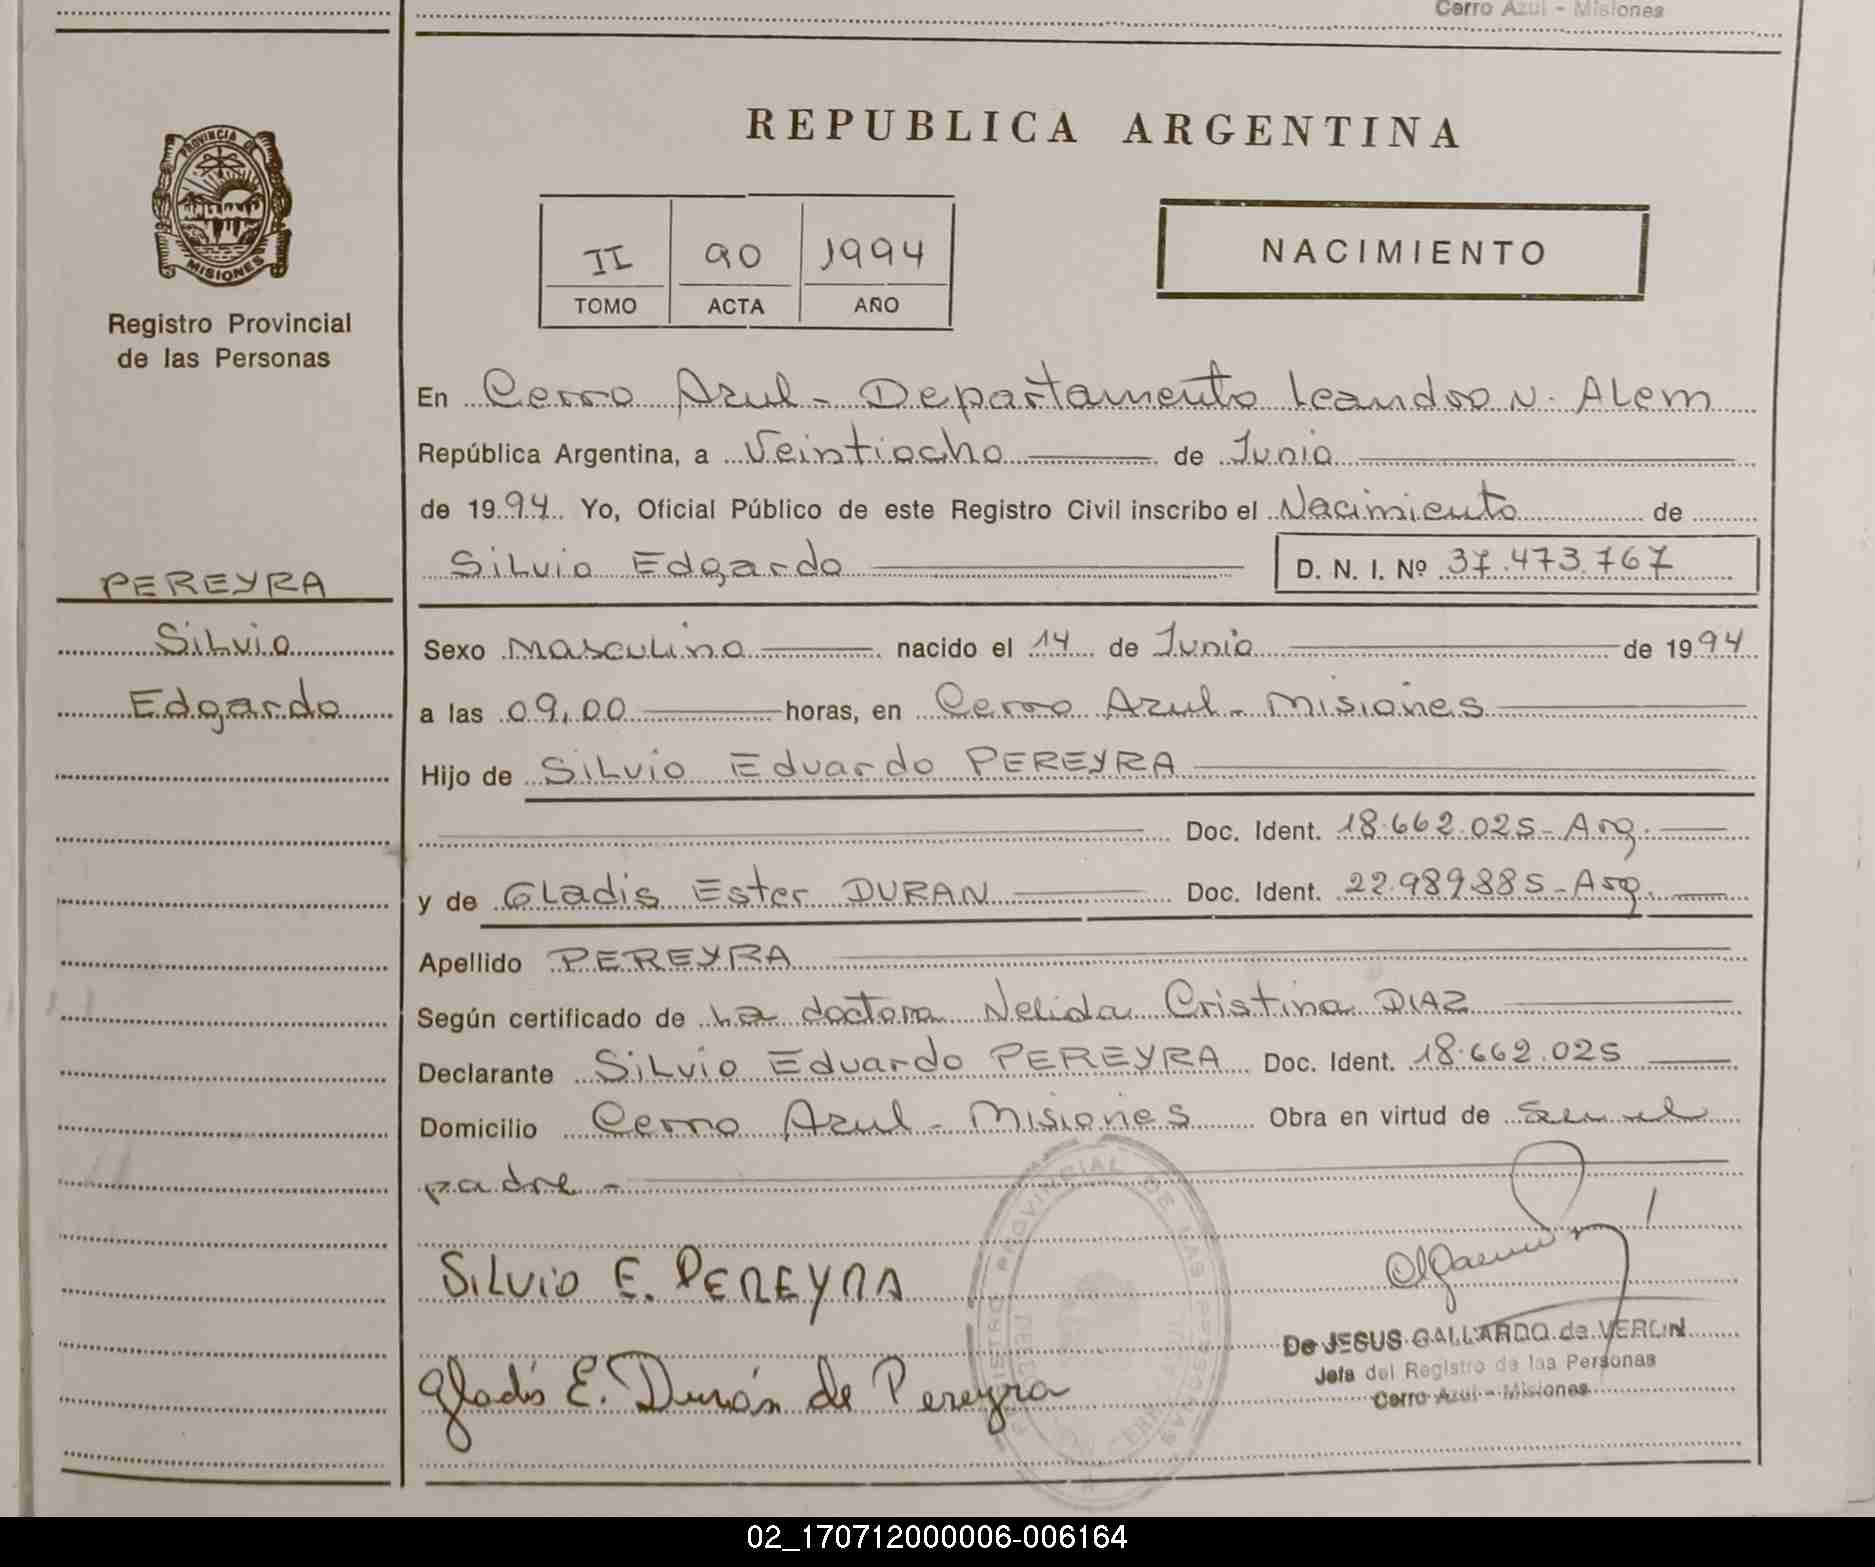 Cerro Azul - Misiones
REPUBLICA ARGENTINA
PROVINCIA DE
MISIONES
Registro Provincial
de las Personas
II 90 1994
TOMO ACTA AÑO
NACIMIENTO
En Cerro Azul - Departamento Leandro N. Alem
República Argentina, a Veintiocho de Junio
de 1994 Yo, Oficial Público de este Registro Civil inscribo el Nacimiento de
Silvio Edgardo D. N. I. Nº 37.473.767
PEREYRA
Silvio
Edgardo
Sexo Masculino nacido el 14 de Junio de 1994
a las 09,00 horas, en Cerro Azul - Misiones
Hijo de Silvio Eduardo PEREYRA
Doc. Ident. 18.662.025 - Arg.
y de Gladis Ester DURAN Doc. Ident. 22.989.885 - Arg.
Apellido PEREYRA
Según certificado de la doctora Nelida Cristina DIAZ
Declarante Silvio Eduardo PEREYRA Doc. Ident. 18.662.025
Domicilio Cerro Azul - Misiones Obra en virtud de Ser el
padre -
SILVIO E. PEREYRA
Gladis E. Durán de Pereyra
REGISTRO PROVINCIAL DE LAS PERSONAS
De JESUS GALLARDO de VERLIN
Jefa del Registro de las Personas
Cerro Azul - Misiones
02_170712000006-006164